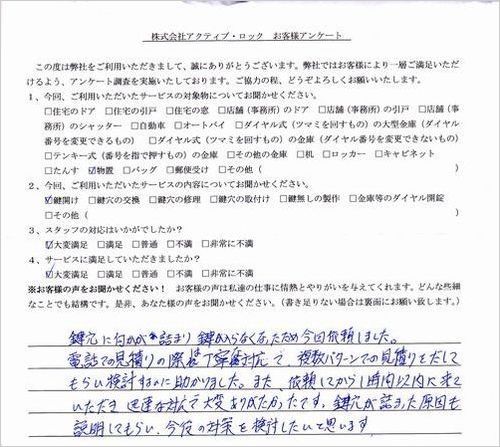 株式会社アクティブ・ロック お客様アンケート
この度は弊社をご利用いただきまして、誠にありがとうございます。弊社ではお客様により一層ご満足いただ
けるよう、アンケート調査を実施いたしております。ご協力の程、どうぞよろしくお願いいたします。
1、今回、ご利用いただいたサービスの対象物についてお聞かせください。
□住宅のドア □住宅の引戸 □住宅の窓 □店舗(事務所)のドア □店舗(事務所)の引戸 □店舗(事
務所)のシャッター □自動車 □オートバイ □ダイヤル式(ツマミを回すもの)の大型金庫(ダイヤル
番号を変更できるもの) □ダイヤル式(ツマミを回すもの)の金庫(ダイヤル番号を変更できないもの)
□テンキー式(番号を指で押すもの)の金庫 □その他の金庫 □机 □ロッカー □キャビネット
□たんす ☑物置 □バッグ □郵便受け □その他( )
2、今回、ご利用いただいたサービスの内容についてお聞かせください。
☑鍵開け □鍵穴の交換 □鍵穴の修理 □鍵穴の取付け □鍵無しの製作 □金庫等のダイヤル開錠
□その他( )
3、スタッフの対応はいかがでしたか?
☑大変満足 □満足 □普通 □不満 □非常に不満
4、サービスに満足していただきましたか?
☑大変満足 □満足 □普通 □不満 □非常に不満
※お客様の声をお聞かせください! お客様の声は私達の仕事に情熱とやりがいを与えてくれます。どんな些細
なことでも結構です。是非、あなた様の声をお聞かせください。(書き足りない場合は裏面にお願い致します。)
鍵穴に何かが詰まり 鍵が入らなくなったため今回依頼しました。
電話での見積りの際は丁寧な対応で、複数パターンでの見積りをだして
もらい検討するのに助かりました。また、依頼してから1時間以内に来て
いただき 迅速な対応で大変ありがたかったです。鍵穴が詰まった原因も
説明してもらい、今後の対策を検討したいと思います